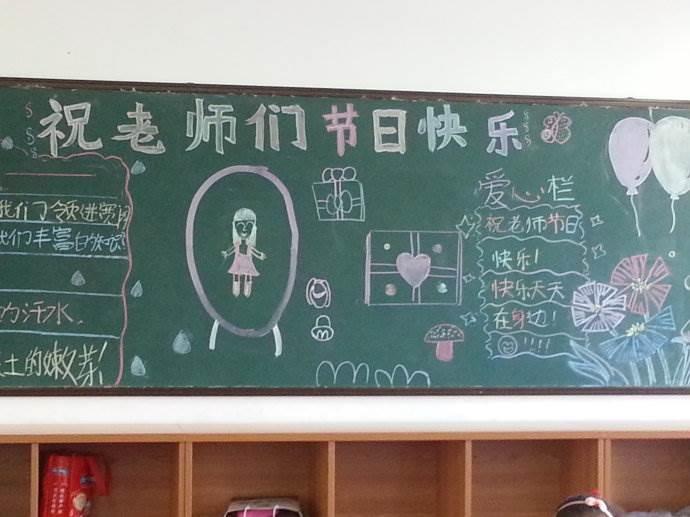 祝老师们节日快乐
我们了领进知
我们丰富白
的汗水
土的嫩芽!
爱心栏
祝老师节日
快乐!
快乐天天
在身边!
!!!!